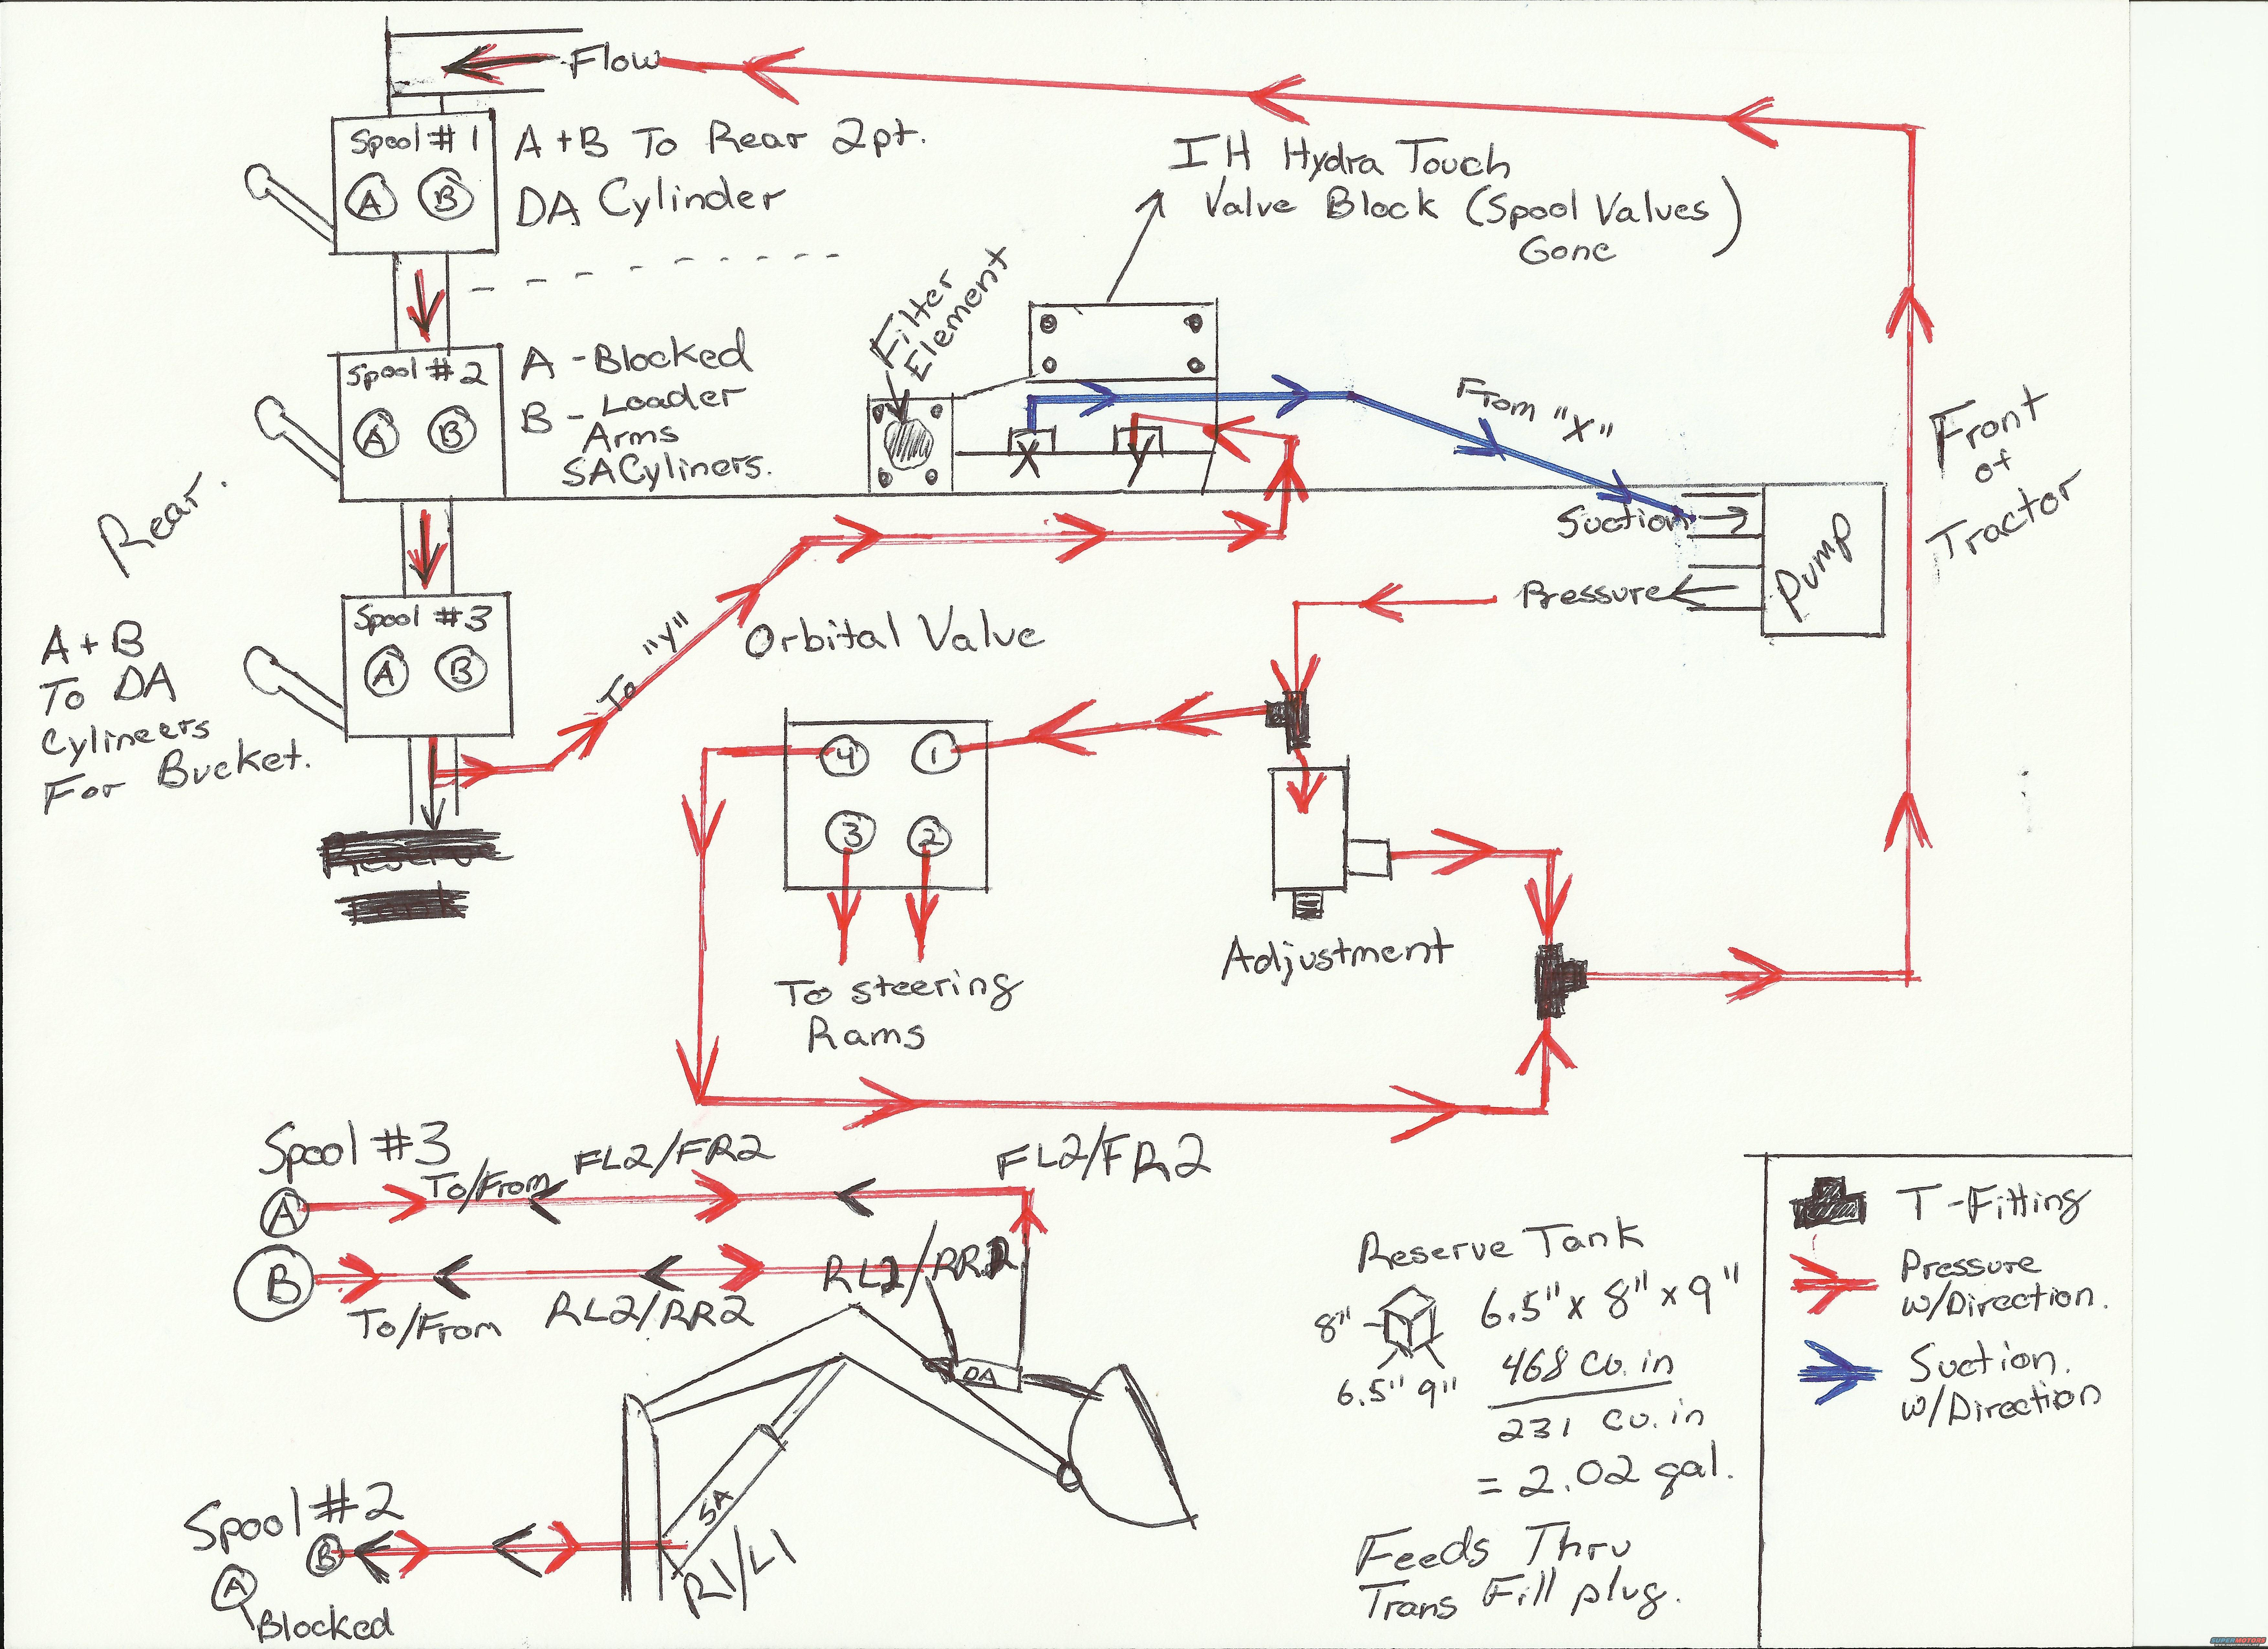 Flow
Spool # 1
A B
A + B To Rear 2pt.
DA Cylinder
IH Hydra Touch
Valve Block (Spool Valves)
Gone
Filter
Element
Spool #2
A B
A - Blocked
B - Loader
Arms
SA Cyliners.
X
Y
From "X"
Suction
Pump
Pressure
Front
of
Tractor
Rear.
Spool #3
A B
A + B
To DA
Cylineers
For Bucket.
To "Y"
Reserve
Orbital Valve
4 1
3 2
To steering
Rams
Adjustment
Spool #3
A
To/From
FL2/FR2
FL2/FR2
B
To/From
RL2/RR2
RL2/RR2
DA
SA
R1/L1
Spool #2
B
A
Blocked
Reserve Tank
8"
6.5" 9"
6.5" x 8" x 9"
468 cu. in
231 cu. in
= 2.02 gal.
Feeds Thru
Trans Fill plug.
T-Fitting
Pressure
w/Direction.
Suction.
w/Direction
SUPERMOTORS